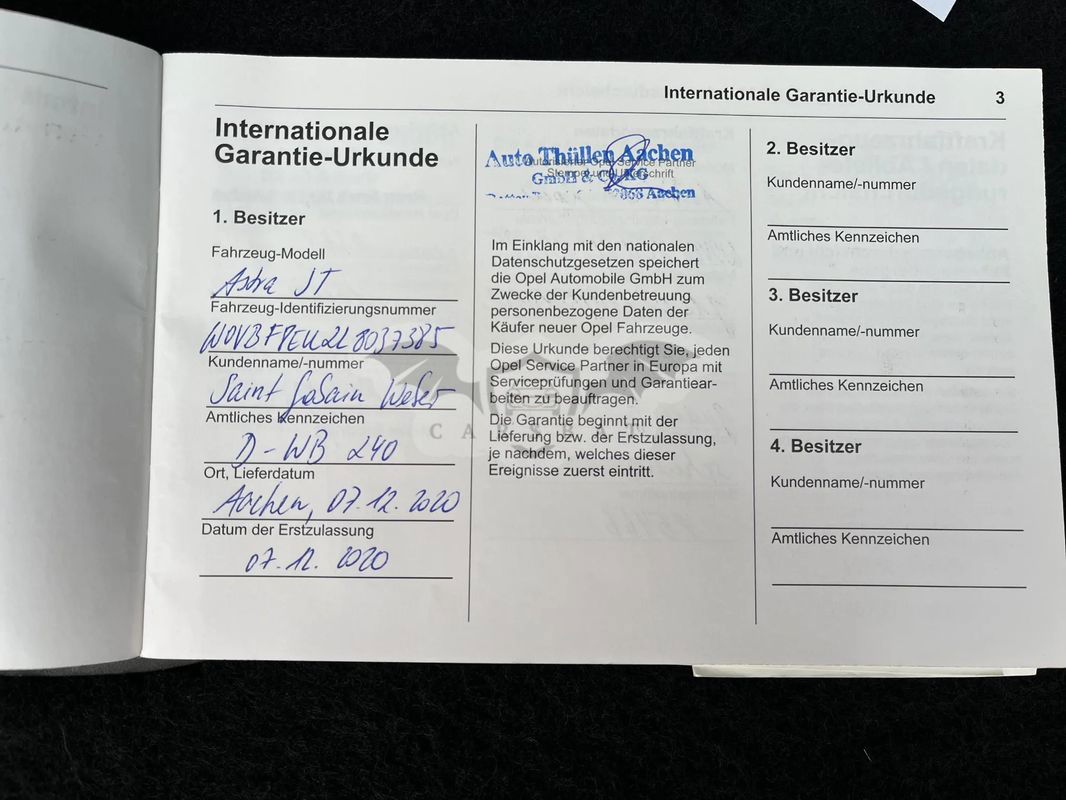 Internationale Garantie-Urkunde 3
Internationale
Garantie-Urkunde
1. Besitzer
Fahrzeug-Modell
Astra ST
Fahrzeug-Identifizierungsnummer
Kundenname/-nummer
Saint Weber
Amtliches Kennzeichen
D-WB 240
Ort, Lieferdatum
Aachen, 07.12.2020
Datum der Erstzulassung
07.12.2020
Auto Thüllen Aachen
Autorisierter Opel Service Partner
GmbH & Co. KG
Stempel und Unterschrift
Aachen
Im Einklang mit den nationalen
Datenschutzgesetzen speichert
die Opel Automobile GmbH zum
Zwecke der Kundenbetreuung
personenbezogene Daten der
Käufer neuer Opel Fahrzeuge.
Diese Urkunde berechtigt Sie, jeden
Opel Service Partner in Europa mit
Serviceprüfungen und Garantiear-
beiten zu beauftragen.
Die Garantie beginnt mit der
Lieferung bzw. der Erstzulassung,
je nachdem, welches dieser
Ereignisse zuerst eintritt.
2. Besitzer
Kundenname/-nummer
Amtliches Kennzeichen
3. Besitzer
Kundenname/-nummer
Amtliches Kennzeichen
4. Besitzer
Kundenname/-nummer
Amtliches Kennzeichen